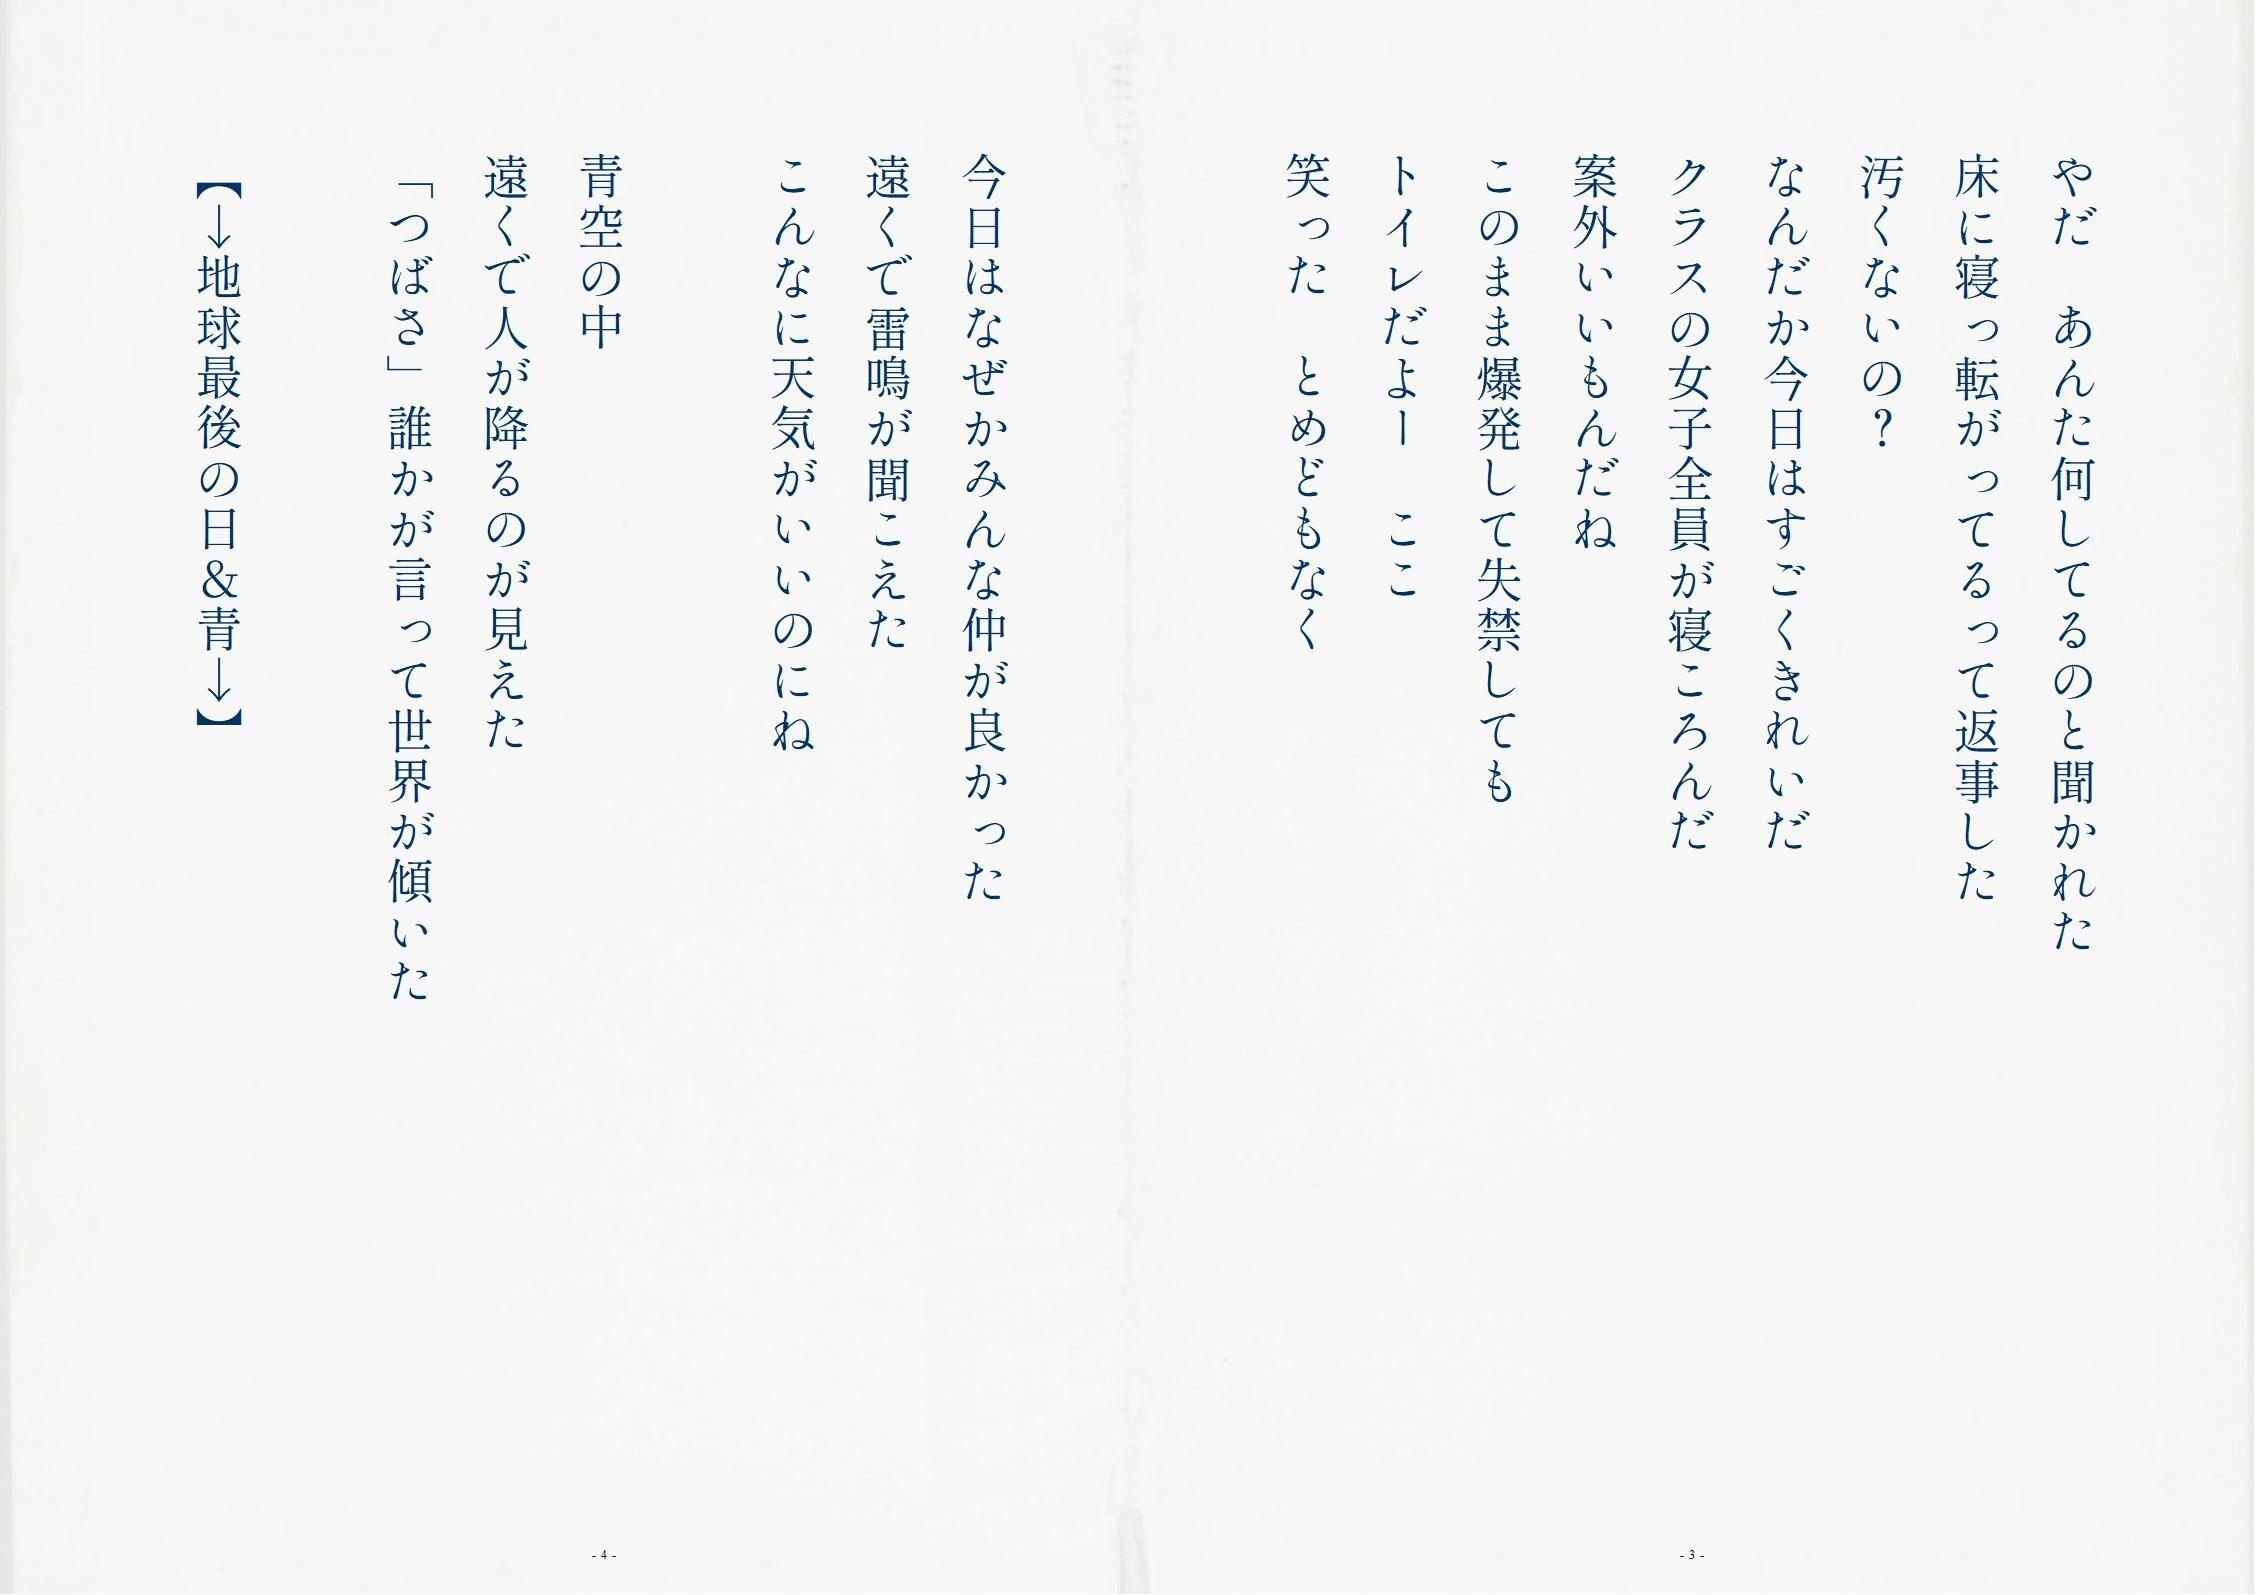 やだ　あんた何してるのと聞かれた
床に寝っ転がってるって返事した
汚くないの？
なんだか今日はすごくきれいだ
クラスの女子全員が寝ころんだ
案外いいもんだね
このまま爆発して失禁しても
トイレだよー　ここ
笑った　とめどもなく
- 3 -
今日はなぜかみんな仲が良かった
遠くで雷鳴が聞こえた
こんなに天気がいいのにね
青空の中
遠くで人が降るのが見えた
「つばさ」誰かが言って世界が傾いた
【→地球最後の日＆青→】
- 4 -